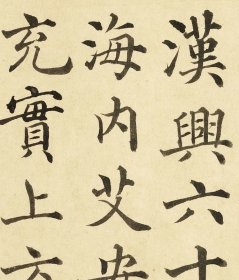 漢興六十
海内艾安
充實上方